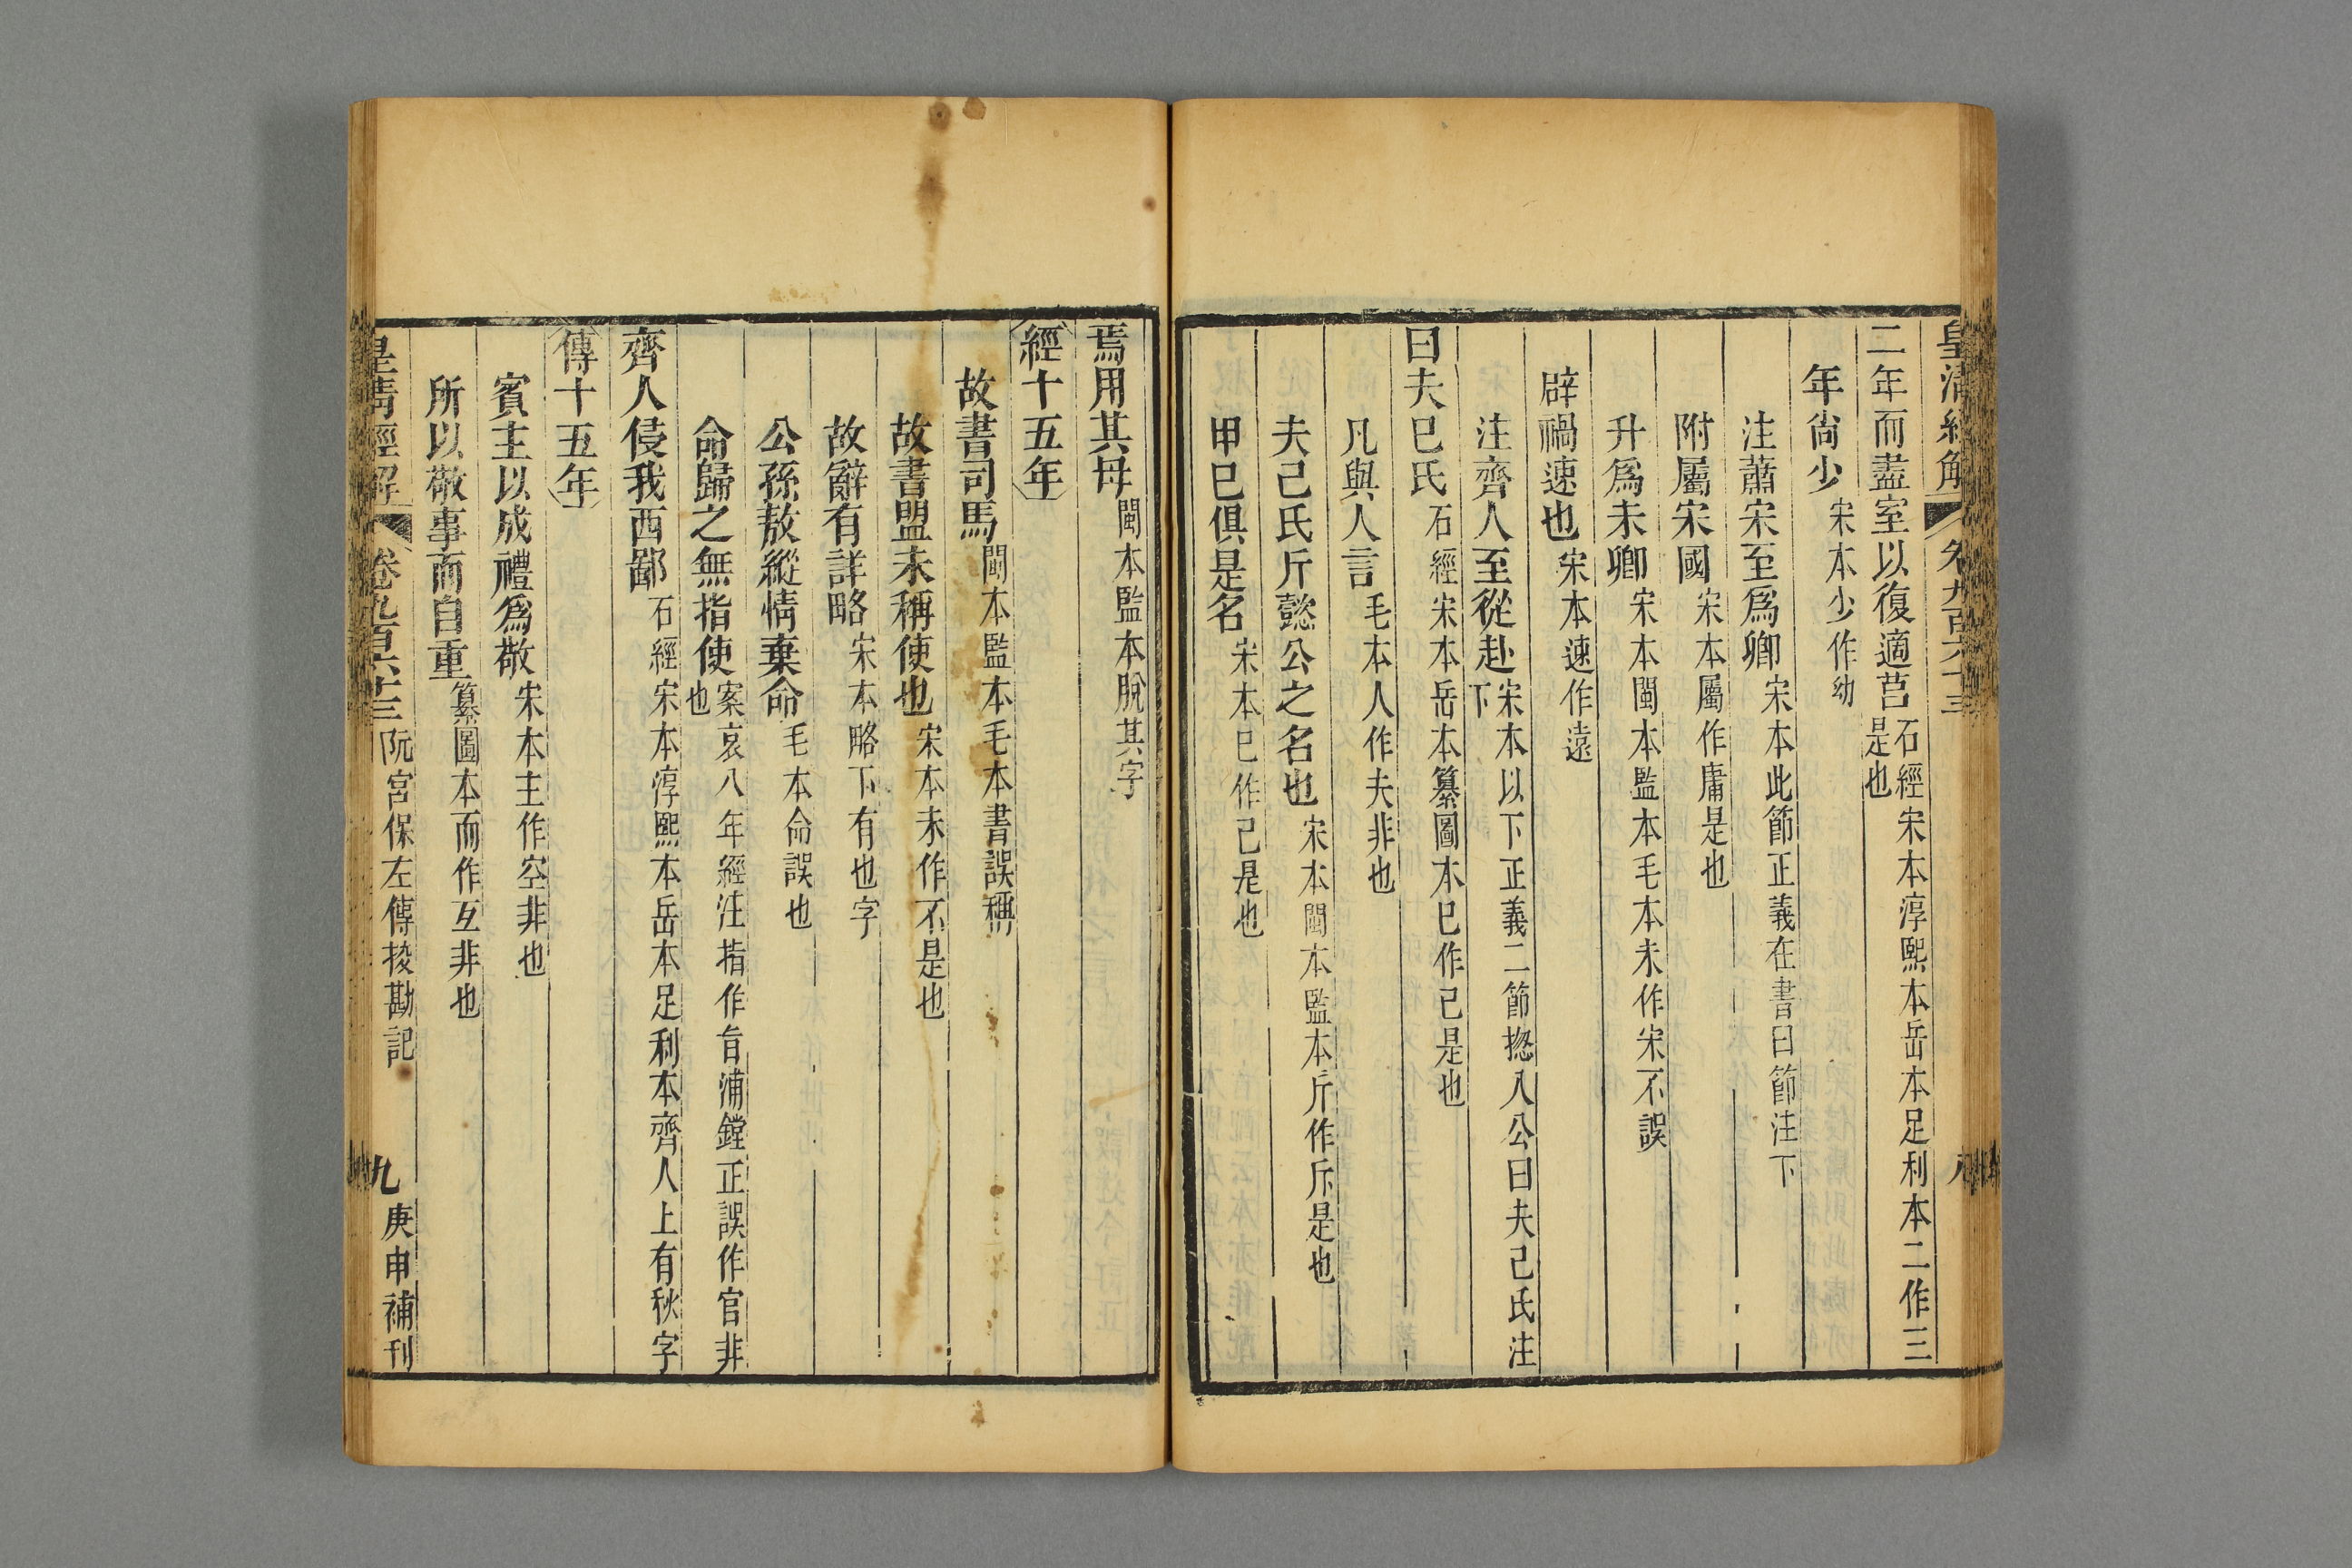 皇清經解 卷九百六十三 八
二年而盡室以復適莒石經宋本淳熙本岳本足利本二作三是也
年尙少宋本少作幼
注蕭宋至爲卿宋本此節正義在書曰節注下
附屬宋國宋本屬作庸是也
升爲未卿宋本閩本監本毛本未作宋不誤
辟禍速也宋本速作遠
注齊人至從赴宋本以下正義二節揔入公曰夫己氏注下
曰夫巳氏石經宋本岳本纂圖本巳作己是也
凡與人言毛本人作夫非也
夫己氏斤懿公之名也宋本閩本監本斤作斥是也
甲巳俱是名宋本巳作己是也
焉用其母閩本監本脫其字
經十五年
故書司馬閩本監本毛本書誤稱
故書盟未稱使也宋本未作不是也
故辭有詳略宋本略下有也字
公孫敖縱情棄命毛本命誤也
命歸之無指使案哀八年經注指作旨浦鏜正誤作官非也
齊人侵我西鄙石經宋本淳熙本岳本足利本齊人上有秋字
傳十五年
賓主以成禮爲敬宋本主作空非也
所以敬事而自重纂圖本而作互非也
皇清經解 卷九百六十三 阮宮保左傳挍勘記 九 庚申補刊